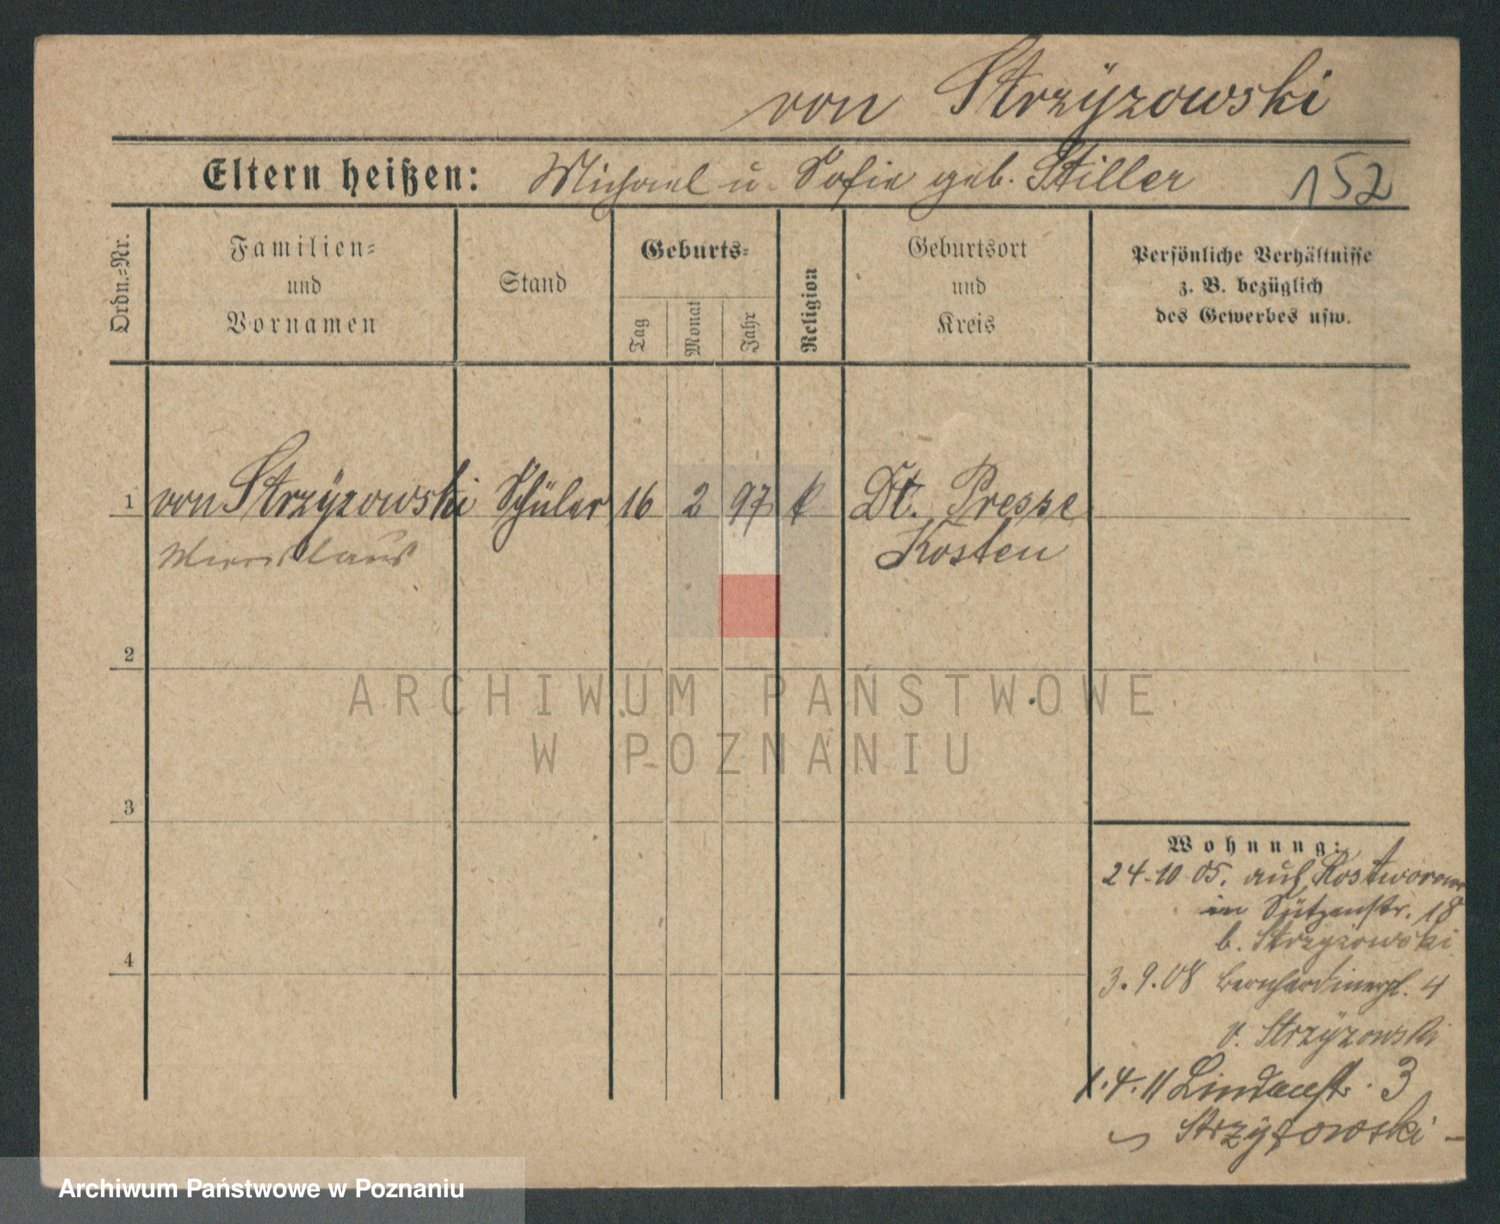 von Strzyzowski
Eltern heißen: Michael u. Sofie geb. Stiller 152
Ordn.-Nr.
Familien-
und
Vornamen
Stand
Geburts-
Tag
Monat
Jahr
Religion
Geburtsort
und
Kreis
Persönliche Verhältnisse
z. B. bezüglich
des Gewerbes usw.
1 von Strzyzowski Schüler 16 2 97 k Dt. Presse
Kosten
2
3
4
ARCHIWUM PAŃSTWOWE
W POZNANIU
Wohnung:
24.10 05. aus
18
b. Strzyzowski
3.9.08 Bernhardinerpl. 4
v. Strzyzowski
1.4.11 Lindenstr. 3
Strzyzowski
Archiwum Państwowe w Poznaniu